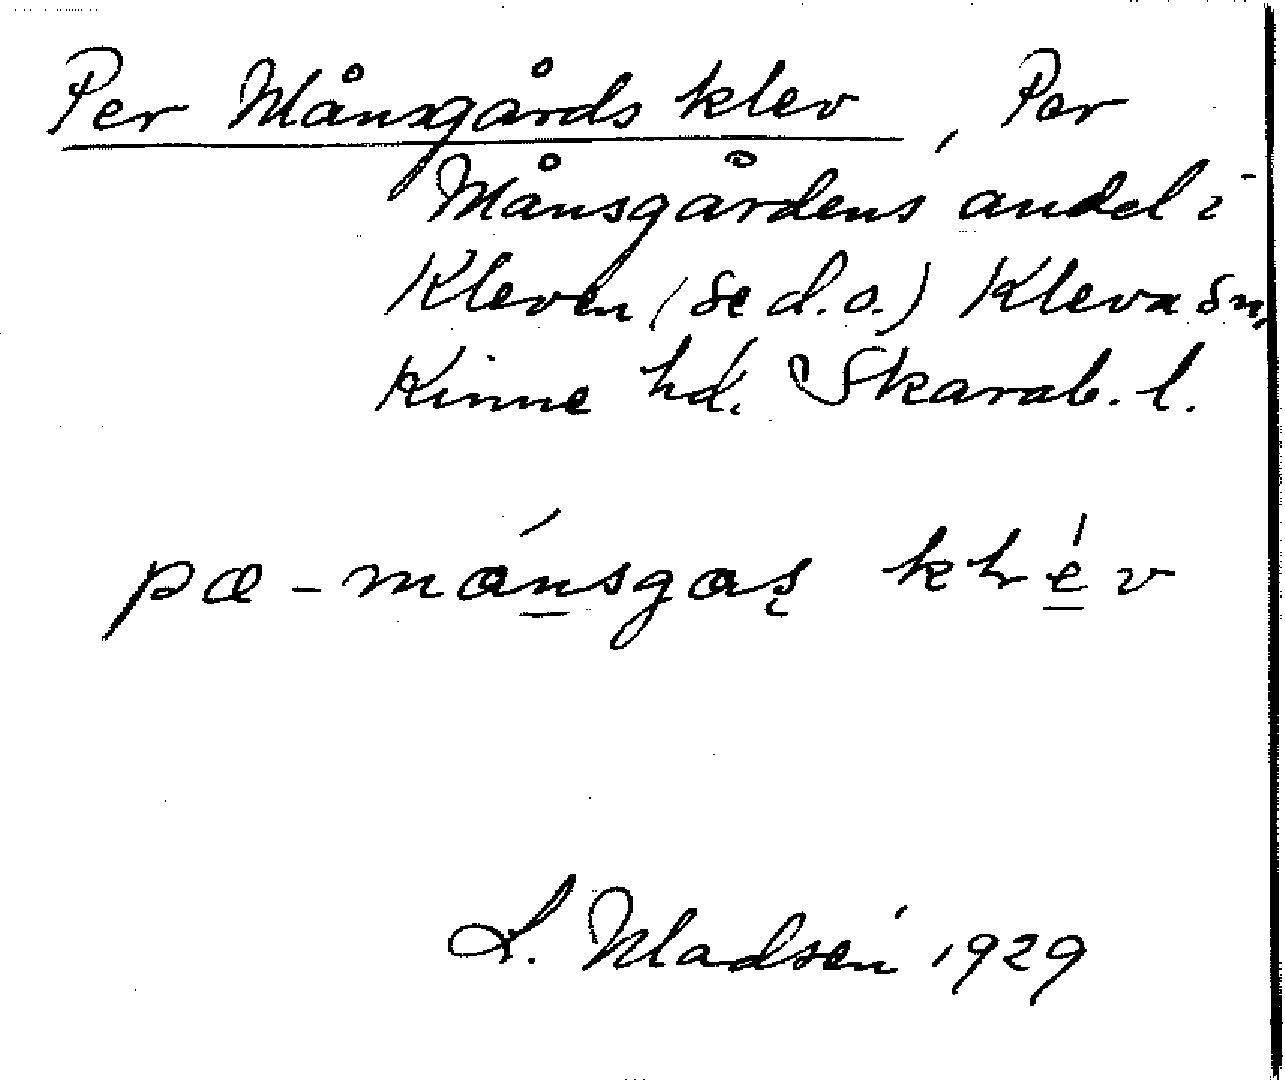 Per Månsgårds klev, Per
Månsgårdens andel i
Kleven (se d.o.) Kleva sn,
Kinne hd. Skarab. l.
L. Madsén 1929